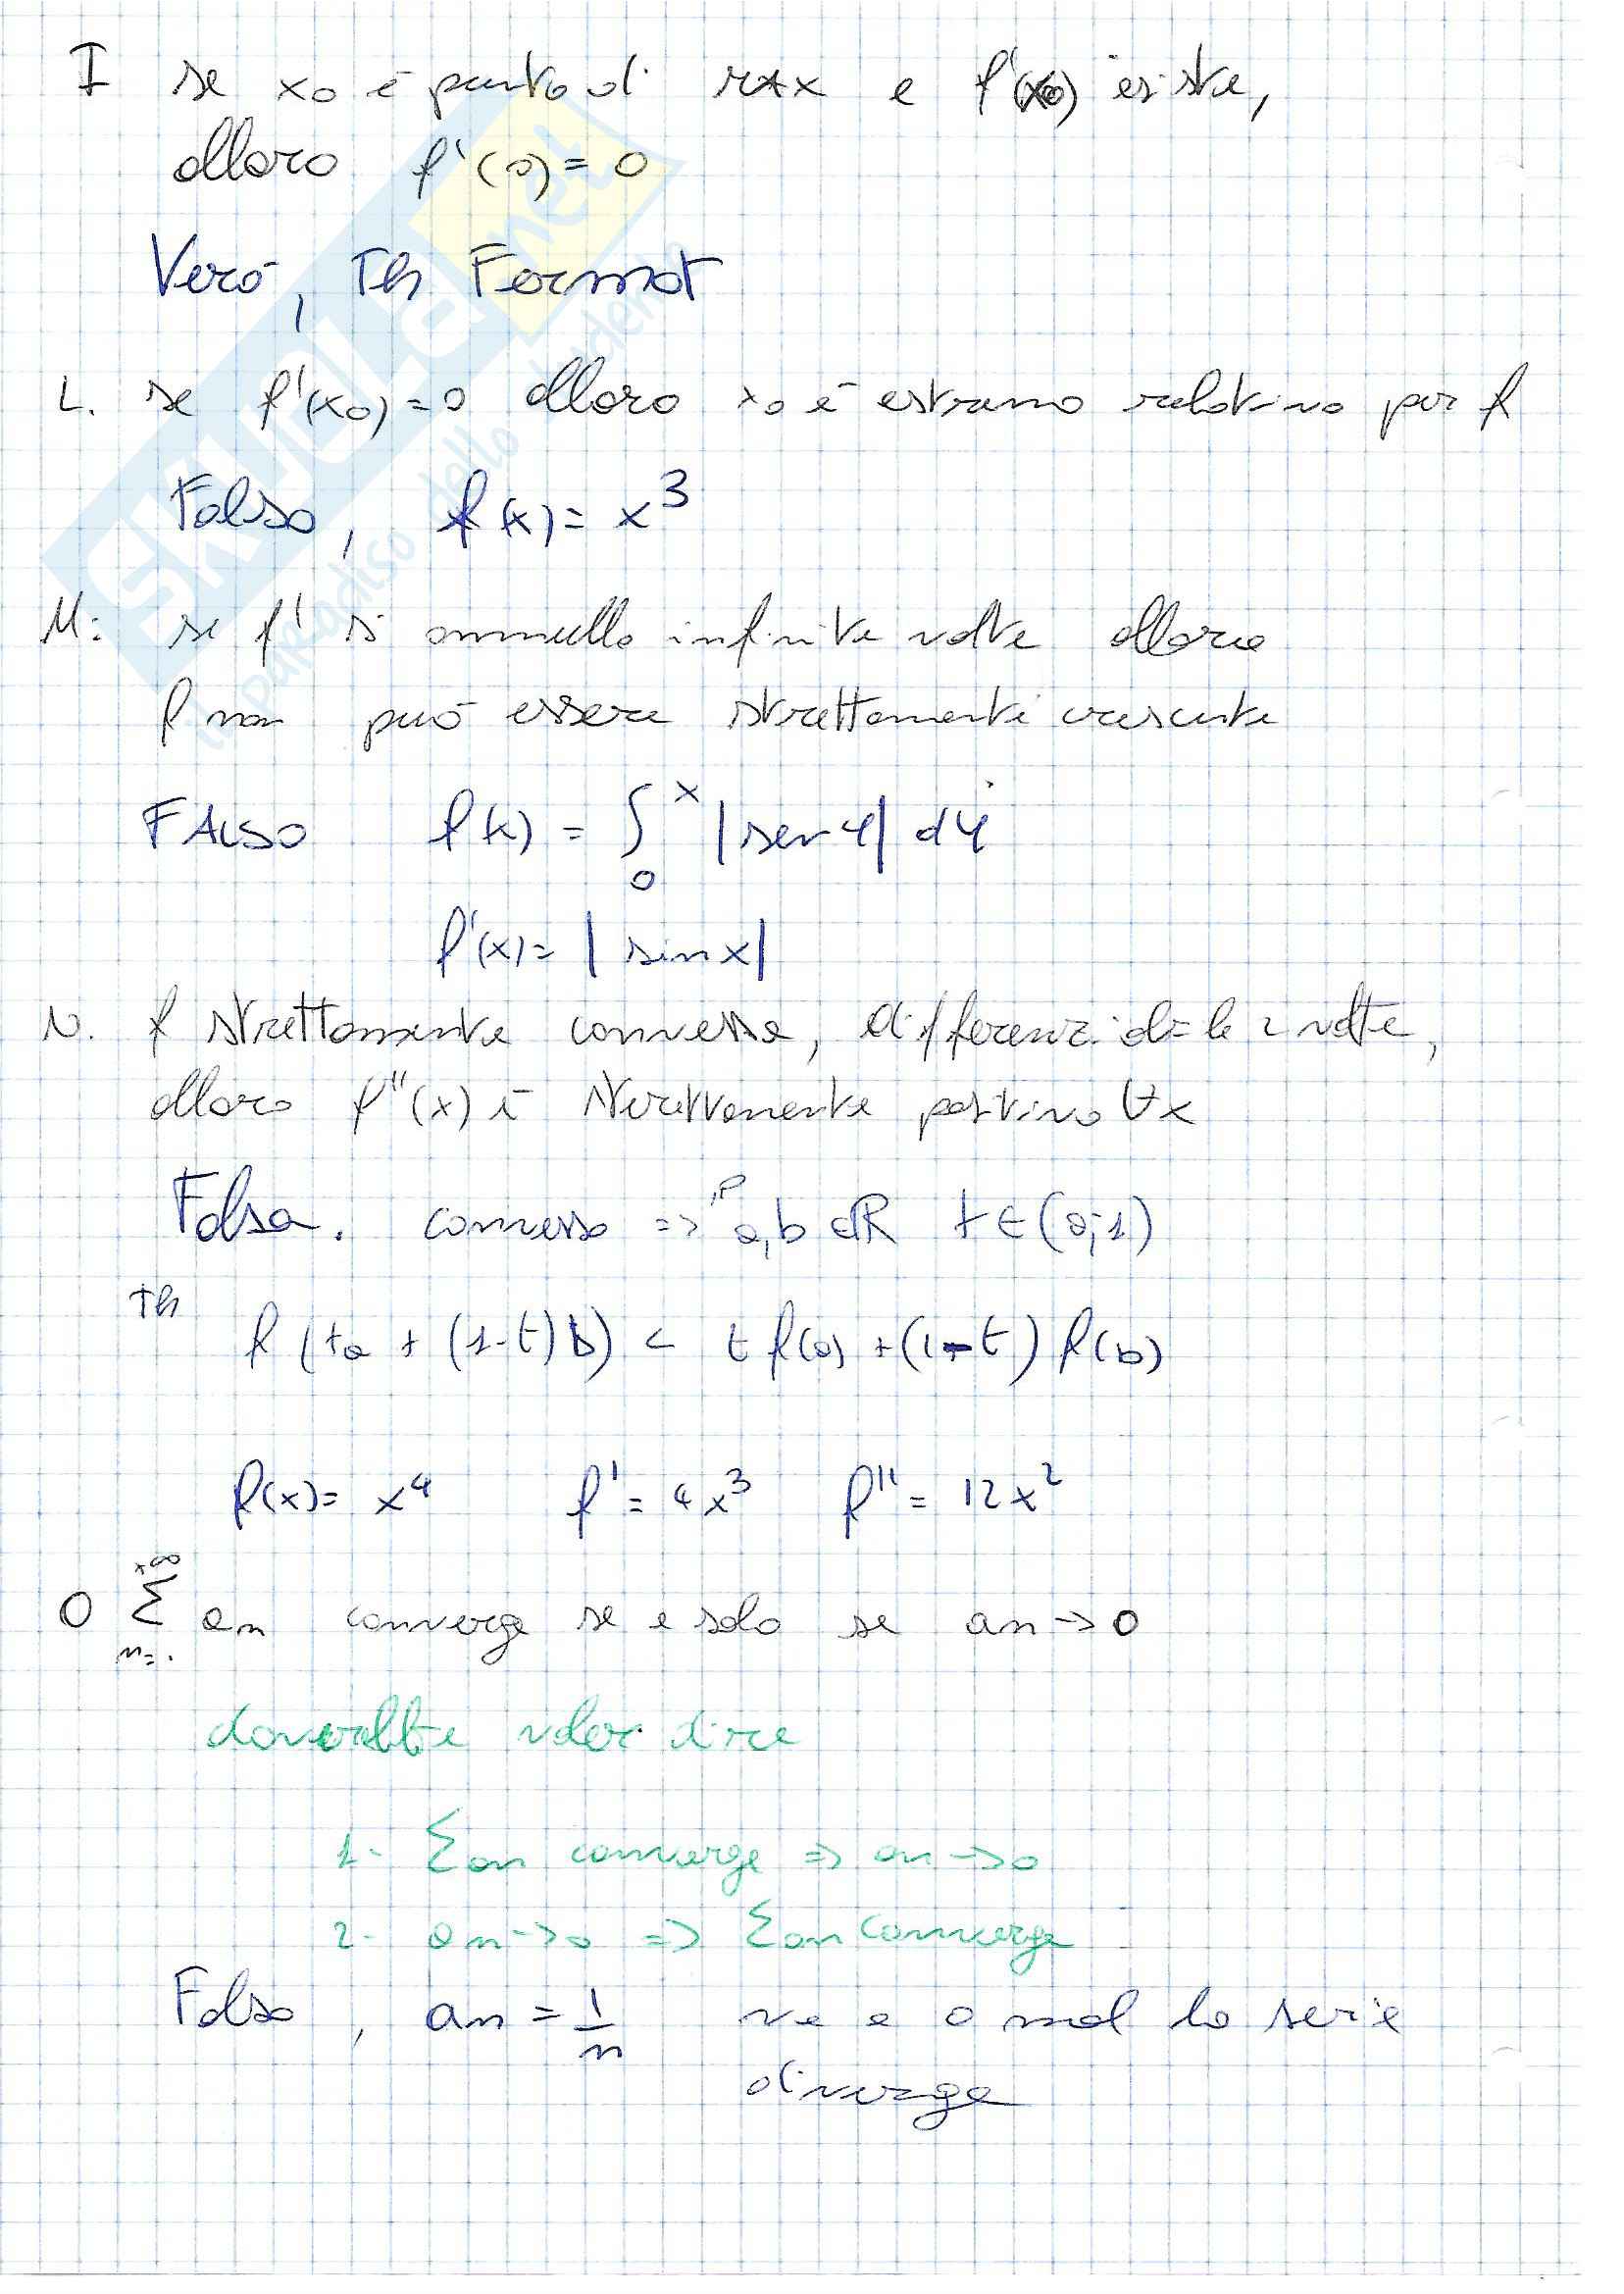 I se x0 è punto di MAX e f'(x0) esiste,
allora f'(0) = 0
Vero, Th Fermat
L. se f'(x0) = 0 allora x0 è estremo relativo per f
Falso, f(x) = x³
M: se f' si annulla infinite volte allora
f non può essere strettamente crescente
FALSO f(x) = ∫₀ˣ |sen φ| dφ
f'(x) = |sin x|
N. f strettamente convessa, differenziabile 2 volte,
allora f''(x) è strettamente positivo ∀x
Falsa. convessa => a,b ∈ ℝ t ∈ (0;1)
Th
f(ta + (1-t)b) < t f(a) + (1-t) f(b)
f(x) = x⁴ f' = 4x³ f'' = 12x²
O +∞ Σ n=1 an converge se e solo se an -> 0
dovrebbe voler dire
1- Σan converge => an -> 0
2- an -> 0 => Σan converge
Falso, an = 1/n va a 0 mal la serie
diverge
SKUOLA.net
il paradiso dello studente